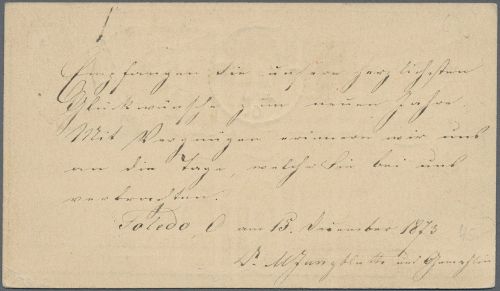 Empfangen Sie unsere herzlichsten
Glückwünsche zum neuen Jahre.
Mit Vergnügen erinnern wir uns
an die Tage, welche Sie bei uns
verbrachten.
Toledo, O am 15. December 1873
Dr. und Gemahlin